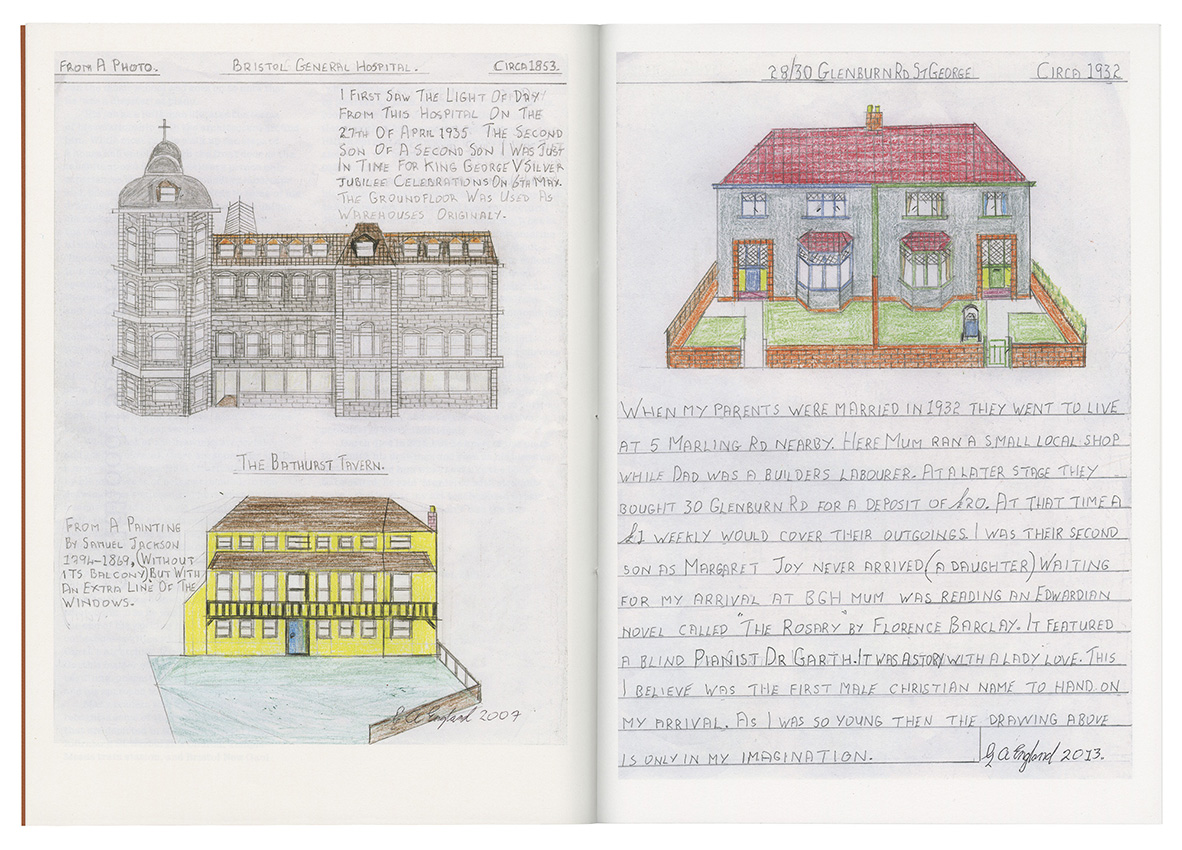 FROM A PHOTO. BRISTOL GENERAL HOSPITAL. CIRCA 1853.
I FIRST SAW THE LIGHT OF DAY
FROM THIS HOSPITAL ON THE
27TH OF APRIL 1935 THE SECOND
SON OF A SECOND SON I WAS JUST
IN TIME FOR KING GEORGE V SILVER
JUBILEE CELEBRATIONS ON 6TH MAY.
THE GROUNDFLOOR WAS USED AS
WAREHOUSES ORIGINALY.
THE BATHURST TAVERN.
FROM A PAINTING
BY SAMUEL JACKSON
1794-1869, (WITHOUT
ITS BALCONY) BUT WITH
AN EXTRA LINE OF THE
WINDOWS.
G A England 2007
28/30 GLENBURN RD ST GEORGE CIRCA 1932
WHEN MY PARENTS WERE MARRIED IN 1932 THEY WENT TO LIVE
AT 5 MARLING RD NEARBY. HERE MUM RAN A SMALL LOCAL SHOP
WHILE DAD WAS A BUILDERS LABOURER. AT A LATER STAGE THEY
BOUGHT 30 GLENBURN RD FOR A DEPOSIT OF £20. AT THAT TIME A
£1 WEEKLY WOULD COVER THEIR OUTGOINGS. I WAS THEIR SECOND
SON AS MARGARET JOY NEVER ARRIVED (A DAUGHTER) WAITING
FOR MY ARRIVAL AT BGH MUM WAS READING AN EDWARDIAN
NOVEL CALLED "THE ROSARY" BY FLORENCE BARCLAY. IT FEATURED
A BLIND PIANIST DR GARTH. IT WAS A STORY WITH A LADY LOVE. THIS
I BELIEVE WAS THE FIRST MALE CHRISTIAN NAME TO HAND ON
MY ARRIVAL. AS I WAS SO YOUNG THEN THE DRAWING ABOVE
IS ONLY IN MY IMAGINATION. G A England 2013.